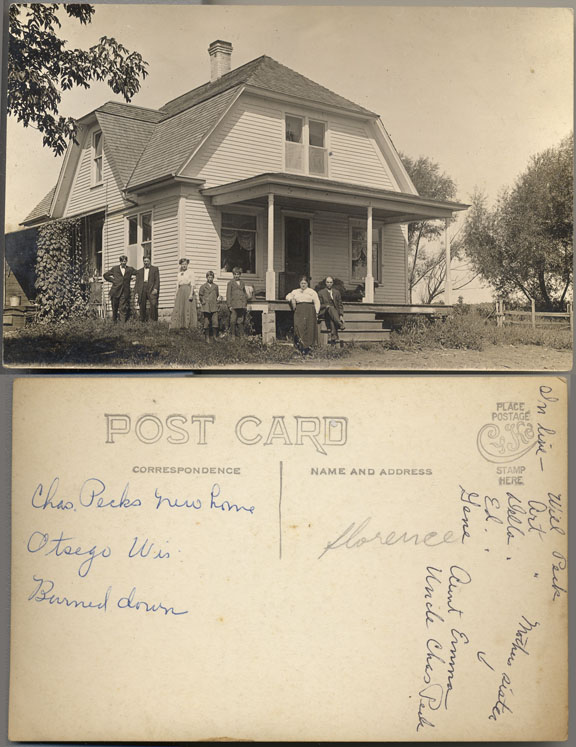 POST CARD
CORRESPONDENCE
NAME AND ADDRESS
PLACE
POSTAGE
STAMP
HERE
Chas. Pecks new home
Otsego Wis.
Burned down
florence
In line - Will Peck
Art "
Della " Mothers sister
Ed. "
Gene
Aunt Emma
Uncle Chas Peck